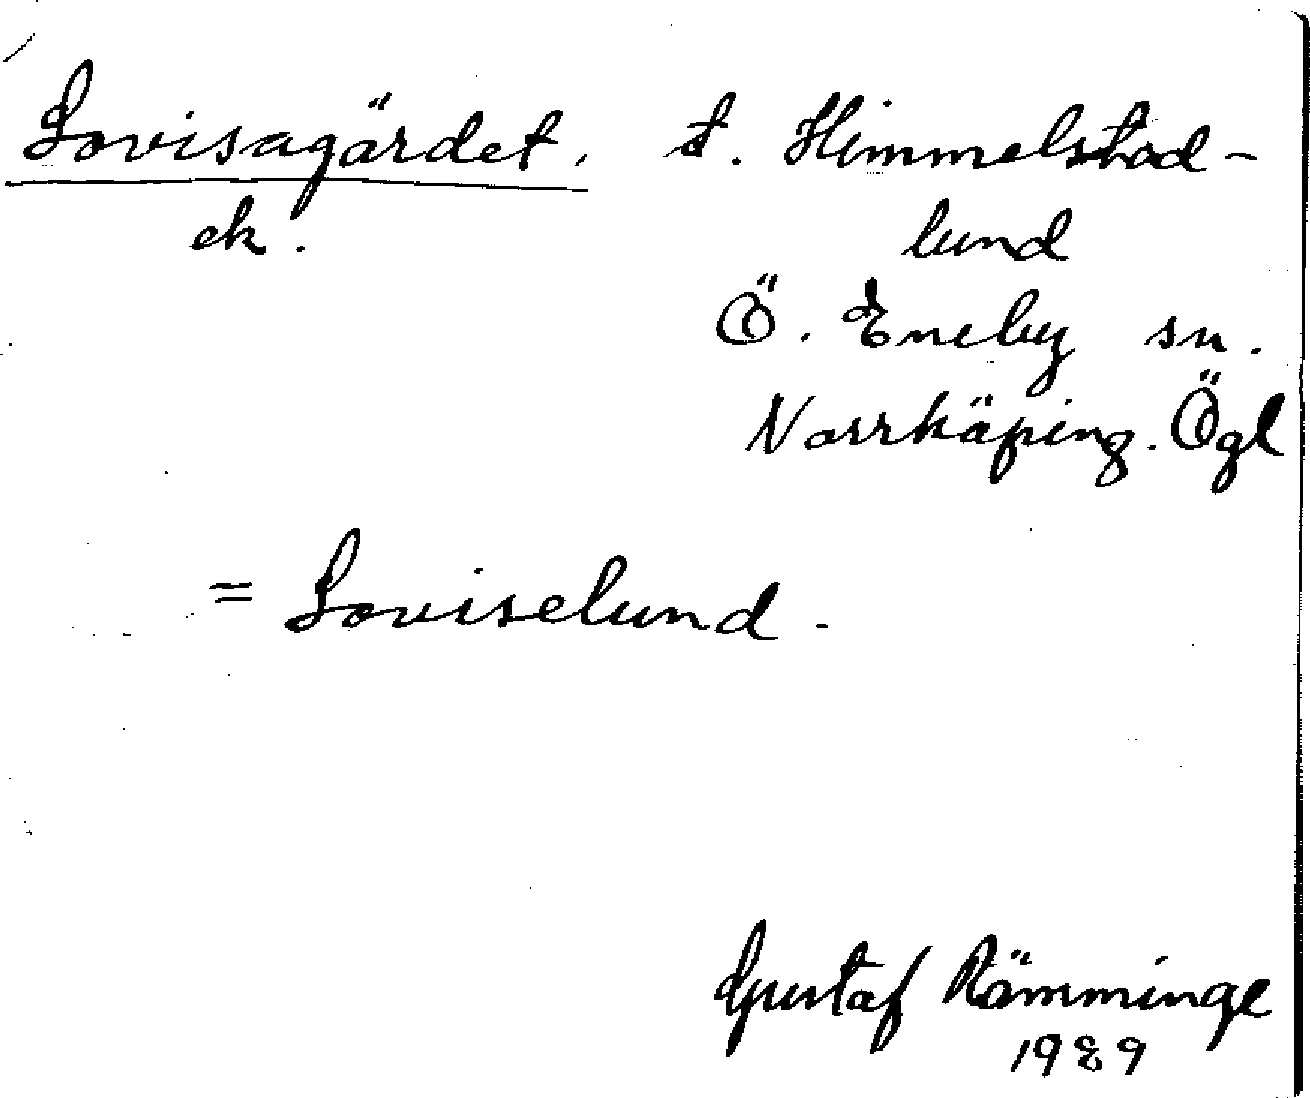 Lovisagärdet, t. Himmelstad-
ek. lund
Ö. Eneby sn.
Norrköping. Ögl
= Loviselund.
Gustaf Römminge
1989